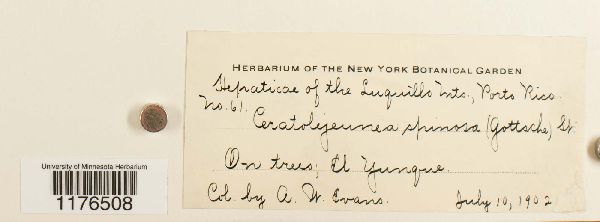 HERBARIUM OF THE NEW YORK BOTANICAL GARDEN
Hepaticae of the Luquillo Mts., Porto Rico.
No. 61.
Ceratolejeunea spinosa (Gottsche) St.
On trees, El Yunque.
Col. by A. W. Evans.
July 10, 1902
University of Minnesota Herbarium
1176508